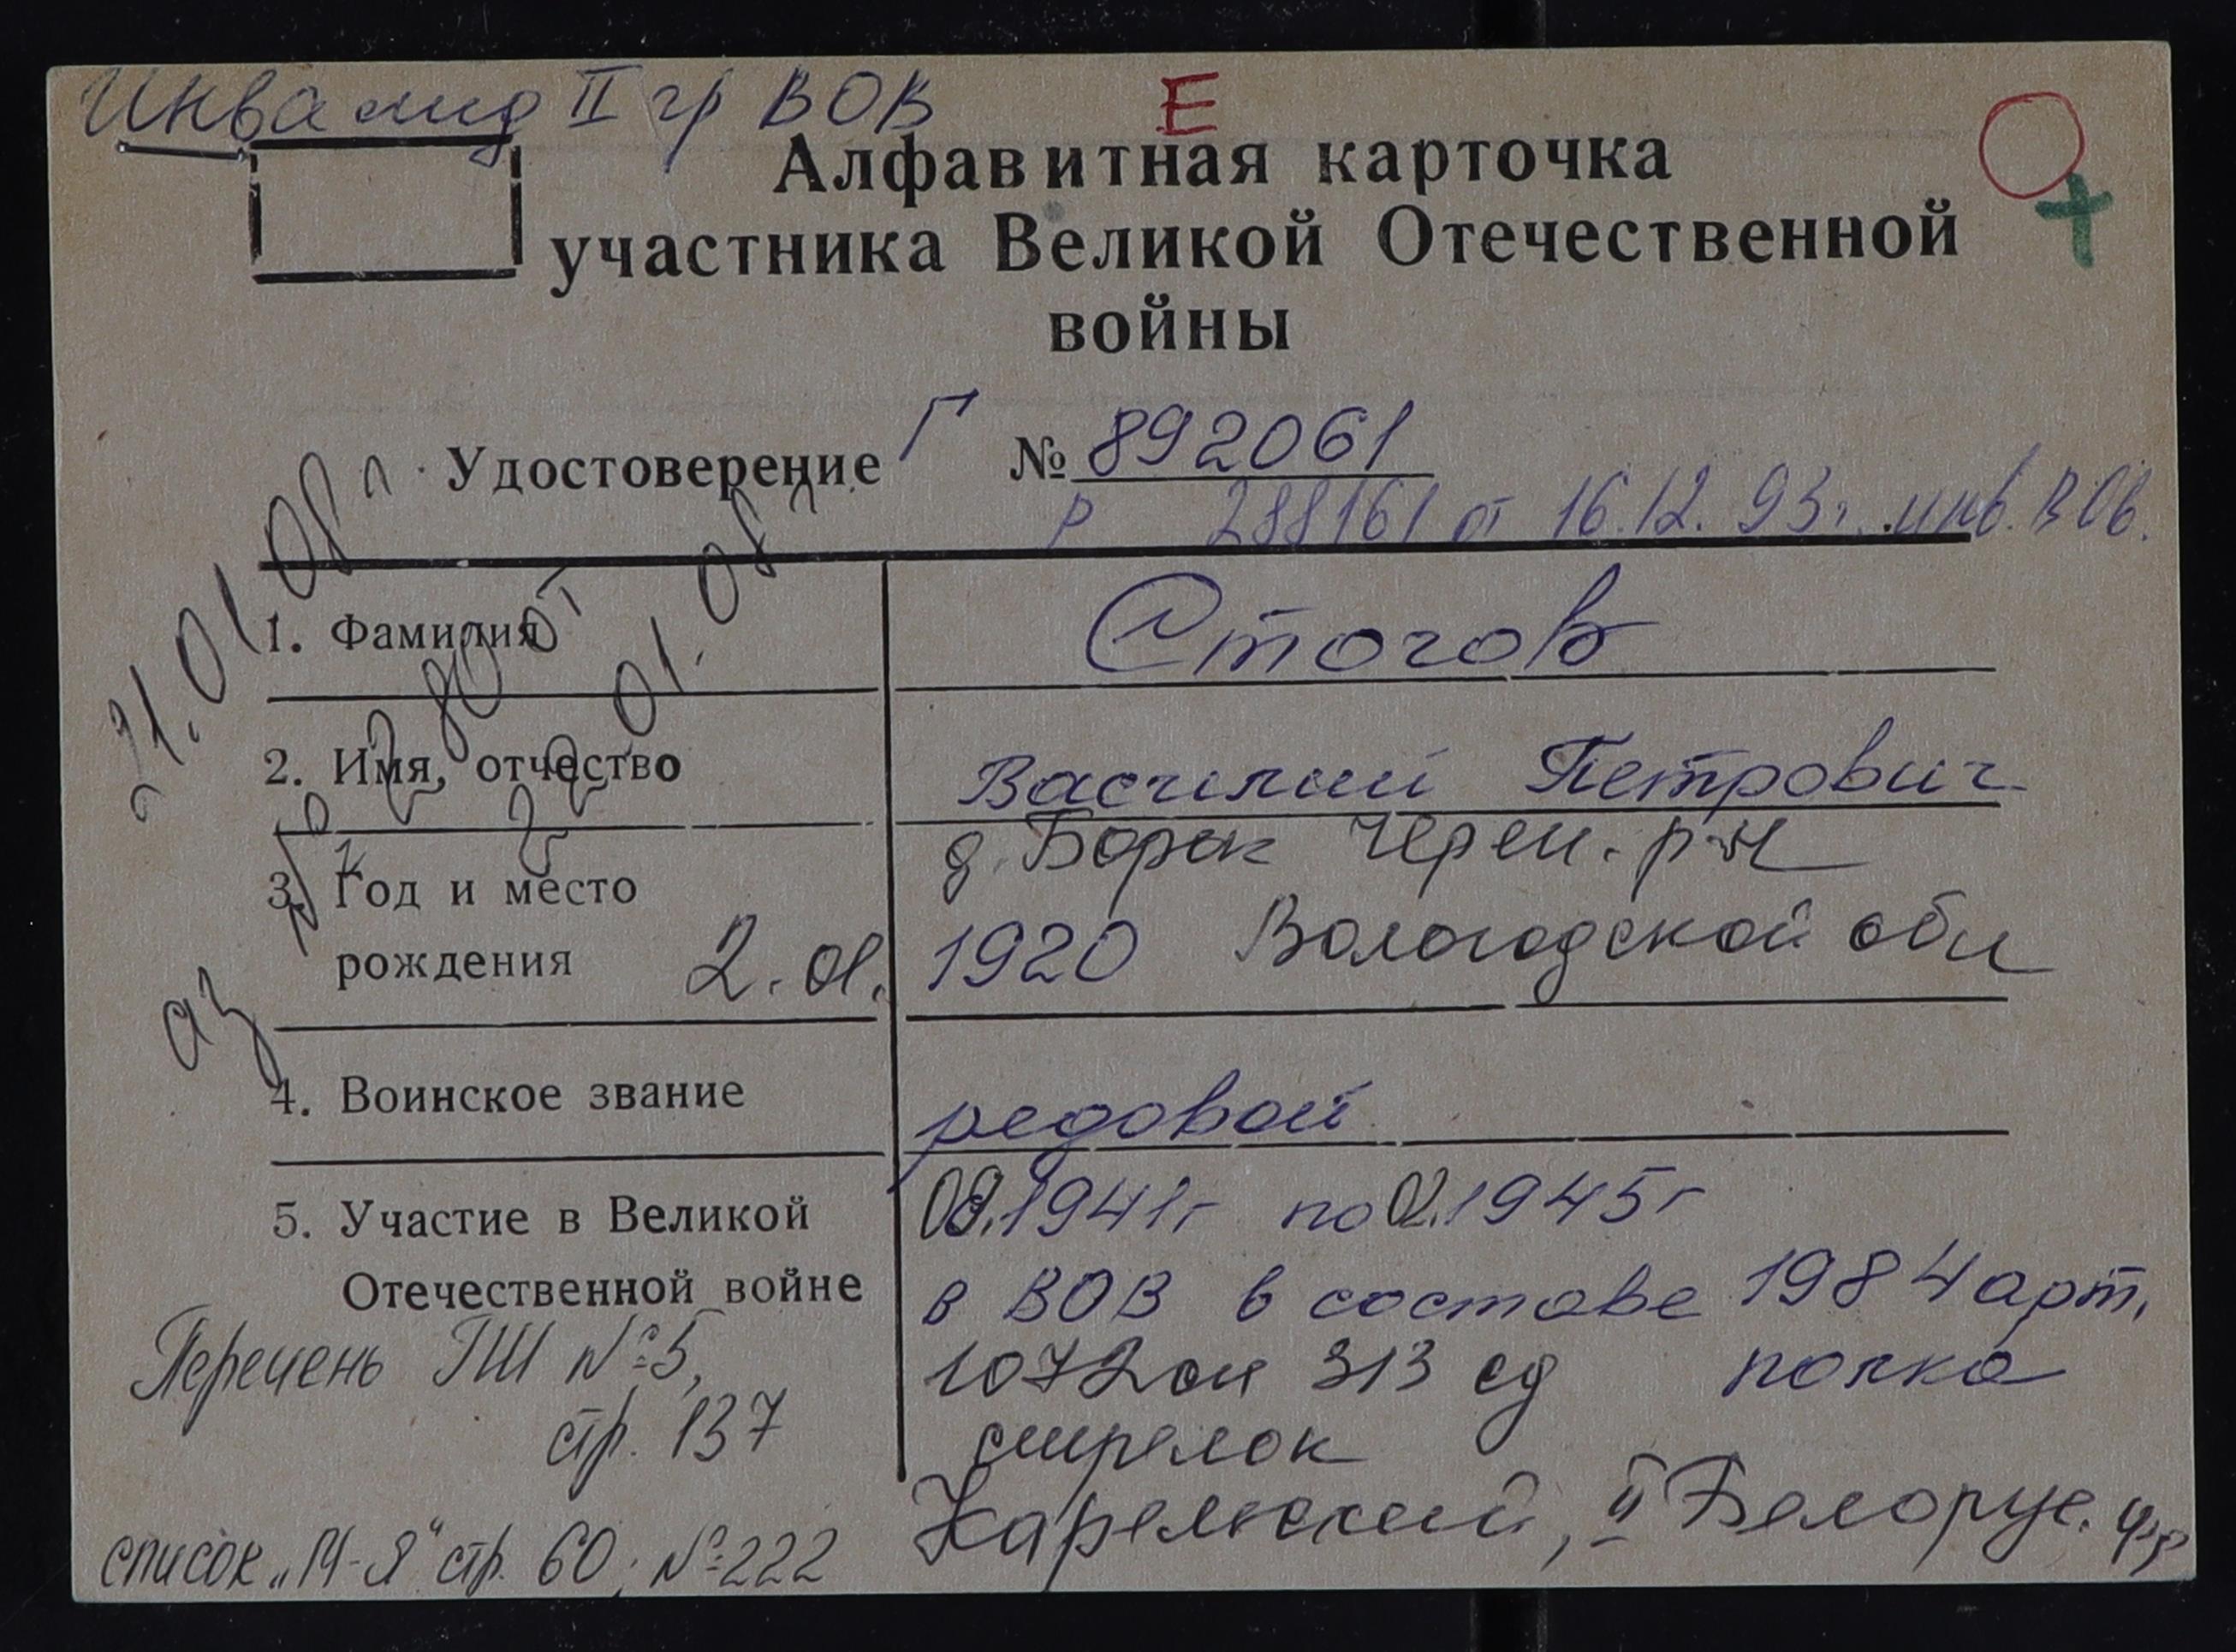 Инвалид II гр ВОВ
Е
Алфавитная карточка
участника Великой Отечественной
войны
Удостоверение Г № 892061
Р 288161 от 16.12.93г. инв. ВОв.
1. Фамилия Стогов
2. Имя, отчество Василий Петрович
д. Борок Череп. р-н
3. Год и место
рождения 2.01. 1920 Вологодской обл
4. Воинское звание редовой
5. Участие в Великой 08.1941г по 02.1945г
Отечественной войне в ВОВ в составе 1984 арт.
Перечень ГШ №5, 1072 сп 313 сд полка
стр. 137 стрелок
Карельский, II Белорус. фр
список „М-Я“ стр. 60; №222
31.01.08 г
от
01.08 г